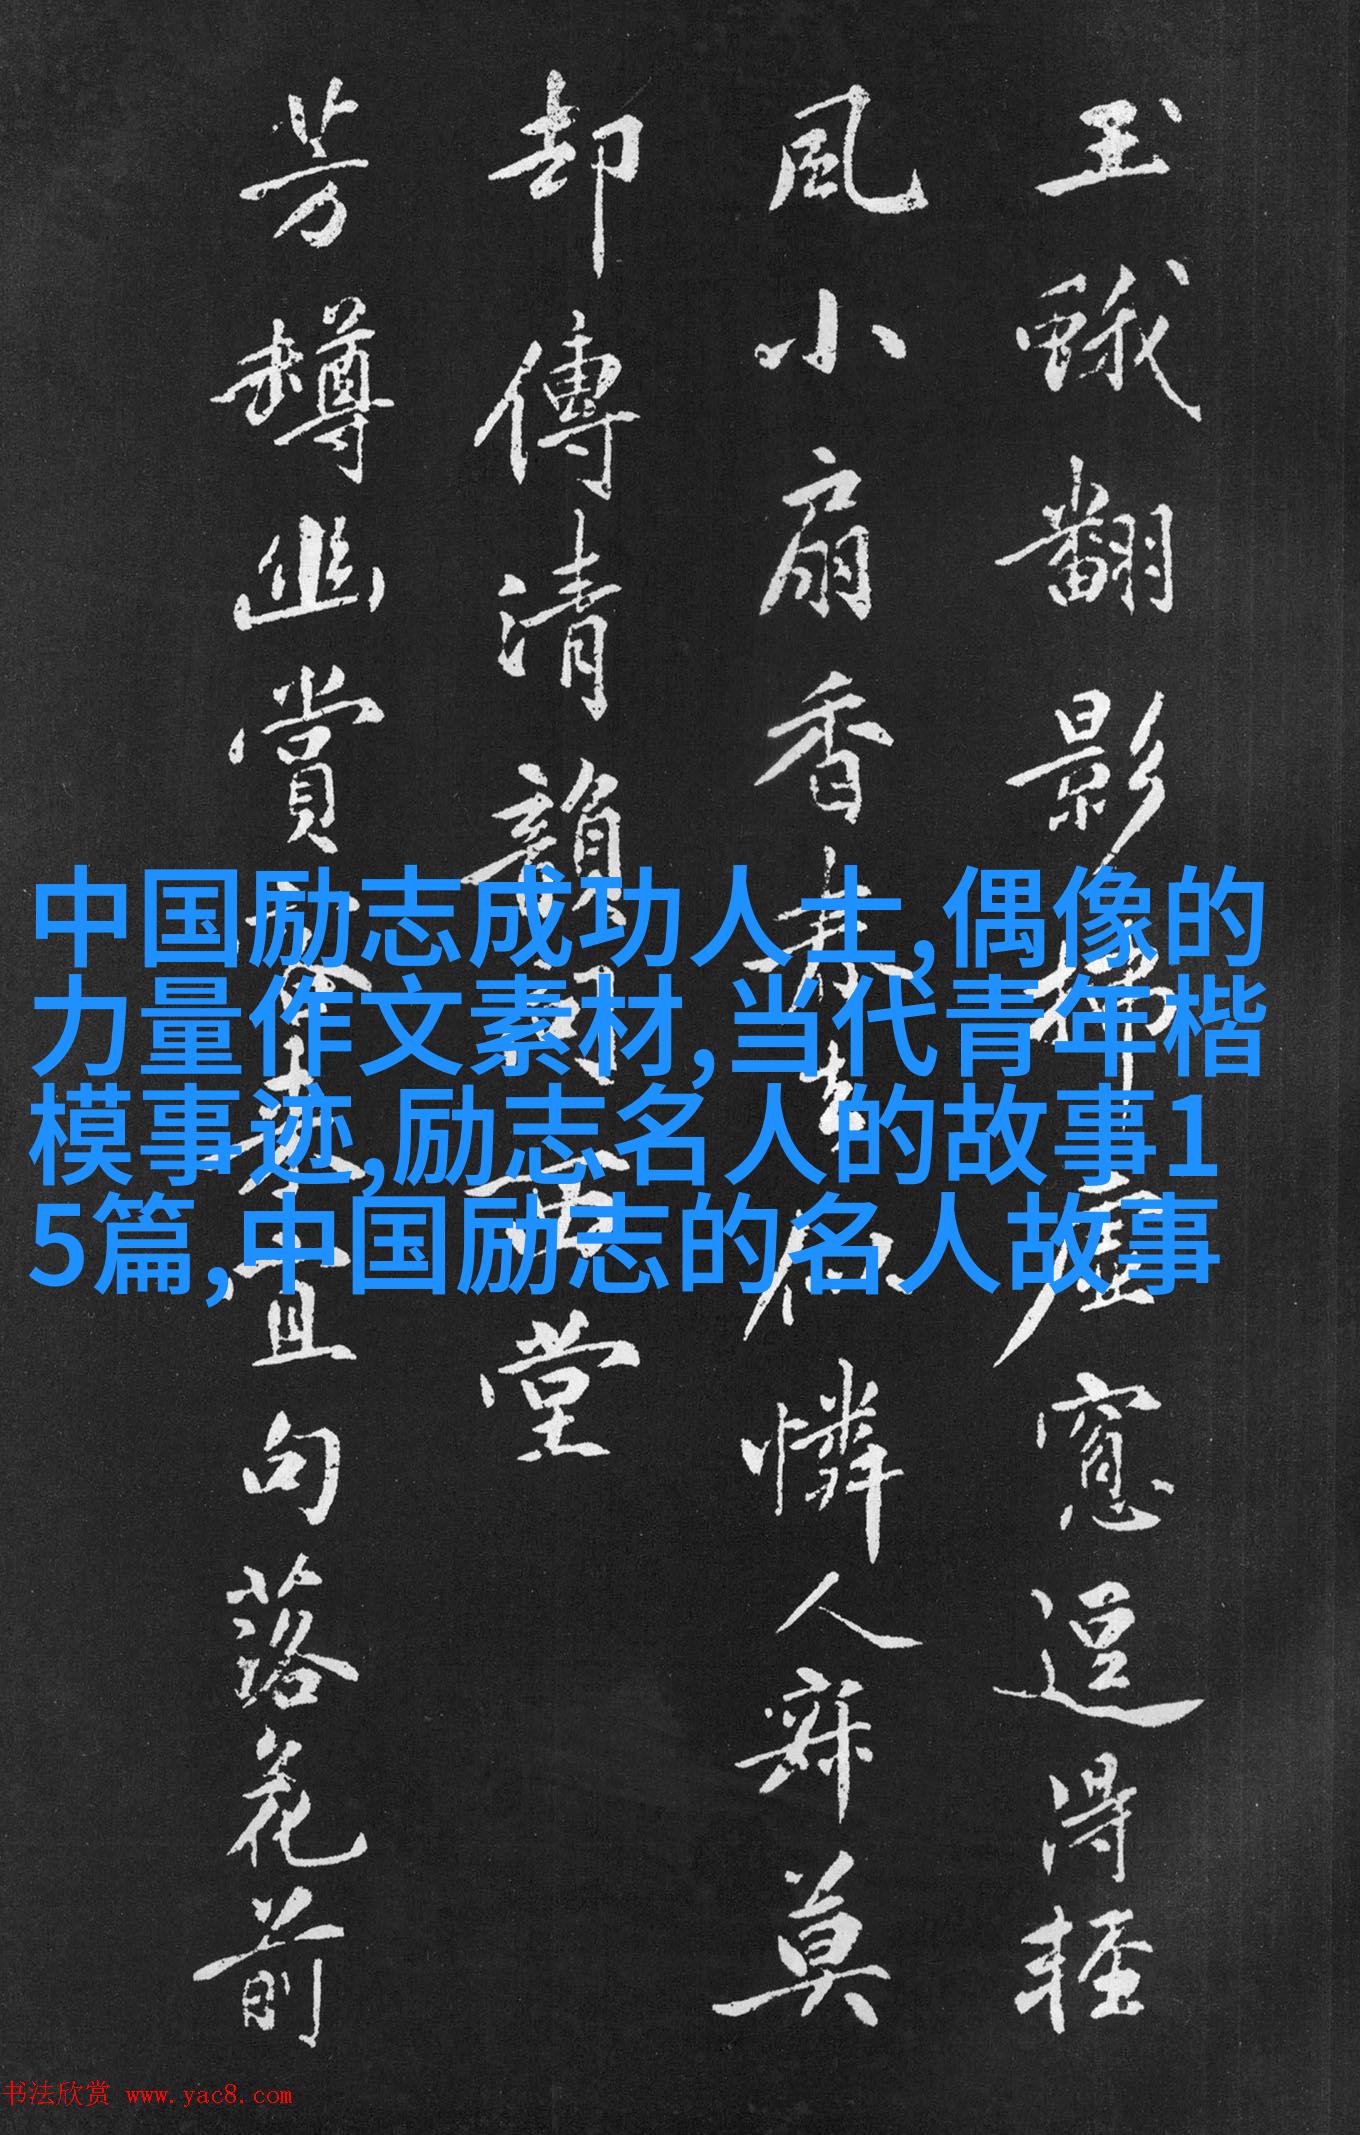 中国励志成功人士,偶像的
力量作文素材,当代青年楷
模事迹,励志名人的故事1
5篇,中国励志的名人故事
玉蛾翻影虛窻逗得輕
風小扇香憐人寐莫
却傳清韻西堂
芳樽幽賞宜句落花前
书法欣赏 www.yac8.com